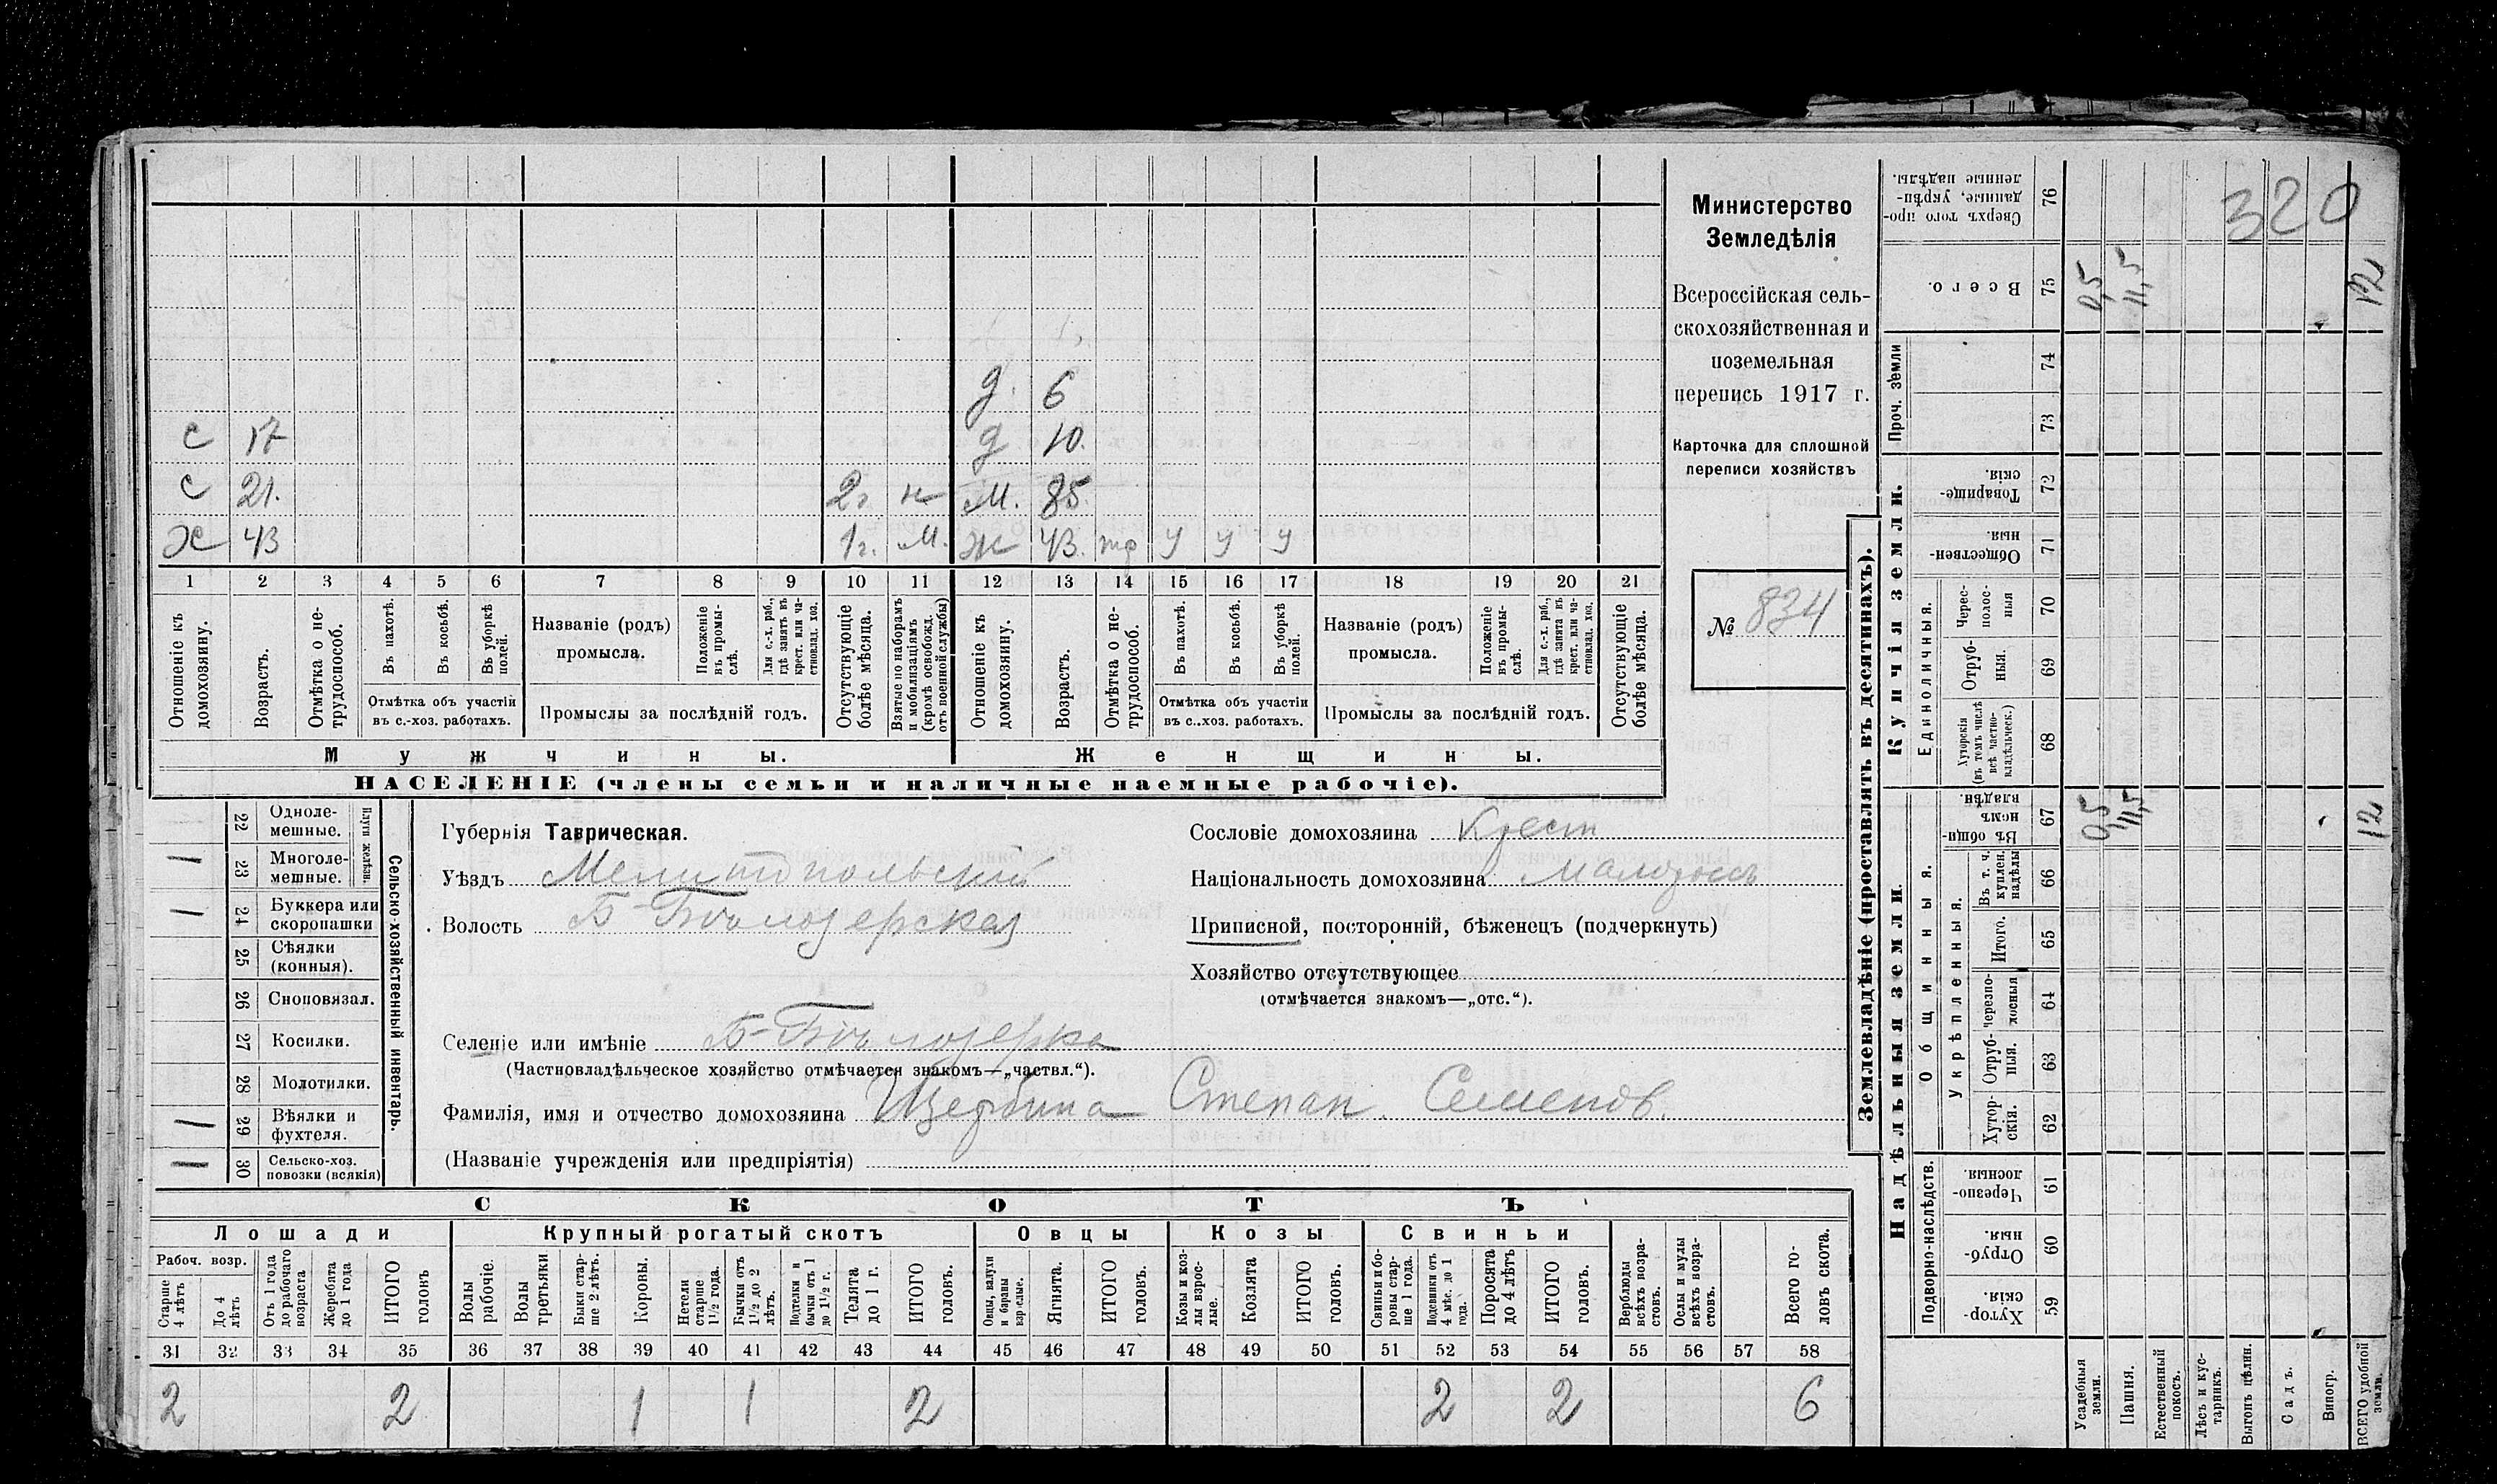 320
Министерство
Земледѣлія
Всероссійская сель-
скохозяйственная и
поземельная
перепись 1917 г.
Карточка для сплошной
переписи хозяйствъ
№ 834
д. 6
с 17 д 10.
с 21. 2г. н М. 85
Х 43 1г. М. Ж 43. тр у у у
1 2 3 4 5 6 7 8 9 10 11 12 13 14 15 16 17 18 19 20 21
Отношеніе къ домохозяину.
Возрастъ.
Отмѣтка о не-трудоспособ.
Въ пахотѣ.
Въ косьбѣ.
Въ уборкѣ полей.
Отмѣтка объ участіи
въ с.-хоз. работахъ.
Названіе (родъ)
промысла.
Положеніе въ промы-слѣ.
Для с.-х. раб., гдѣ занятъ въ крест. или ча-стновлад. хоз.
Промыслы за послѣдній годъ.
Отсутствующіе болѣе мѣсяца.
Взятые по наборамъ и мобилизаціямъ (кромѣ освобожд. отъ военной службы)
Отношеніе къ домохозяину.
Возрастъ.
Отмѣтка о не-трудоспособ.
Въ пахотѣ.
Въ косьбѣ.
Въ уборкѣ полей.
Отмѣтка объ участіи
въ с..хоз. работахъ.
Названіе (родъ)
промысла.
Положеніе въ промы-слѣ.
Для с.-х. раб., гдѣ занята въ крест. или ча-стновлад. хоз.
Промыслы за послѣдній годъ.
Отсутствующіе болѣе мѣсяца.
Мужчины. Женщины.
НАСЕЛЕНІЕ (члены семьи и наличные наемные рабочіе).
Сельско-хозяйственный инвентарь.
Плуги желѣзн.
22 Одноле-мешные.
1 23 Многоле-мешные.
1 24 Буккера или скоропашки
25 Сѣялки (конныя).
26 Сноповязал.
27 Косилки.
28 Молотилки.
1 29 Вѣялки и фухтеля.
1 30 Сельско-хоз. повозки (всякія)
Губернія Таврическая.
Уѣздъ Мелитопольскій
Волость Б-Бѣлозерская
Селеніе или имѣніе Б-Бѣлозерка
(Частновладѣльческое хозяйство отмѣчается знакомъ—„частвл.“).
Фамилія, имя и отчество домохозяина Щербина Степан. Семенов.
(Названіе учрежденія или предпріятія)
Сословіе домохозяина Крест
Національность домохозяина Малоросс
Приписной, посторонній, бѣженецъ (подчеркнуть)
Хозяйство отсутствующее
(отмѣчается знакомъ—„отс.“).
СКОТЪ
Лошади Крупный рогатый скотъ Овцы Козы Свиньи
Рабоч. возр.
Старше 4 лѣтъ
До 4 лѣтъ
Отъ 1 года до рабочаго возраста
Жеребята до 1 года
ИТОГО головъ
Волы рабочіе.
Волы третьяки
Быки стар-ше 2 лѣтъ.
Коровы.
Нетели старше 1½ года.
Бычки отъ 1½ до 2 лѣтъ.
Подтелки и бычки отъ 1 до 1½ г.
Телята до 1 г.
ИТОГО головъ.
Овцы, валухи и бараны взрослые.
Ягнята.
ИТОГО головъ.
Козы и коз-лы взрос-лые.
Козлята
ИТОГО головъ.
Свиньи и бо-ровы стар-ше 1 года.
Подсвинки отъ 4 мѣс. до 1 года.
Поросята до 4 лѣтъ
ИТОГО головъ.
Верблюды всѣхъ возра-стовъ.
Ослы и мулы всѣхъ возра-стовъ.
Всего го-ловъ скота.
31 32 33 34 35 36 37 38 39 40 41 42 43 44 45 46 47 48 49 50 51 52 53 54 55 56 57 58
2 2 1 1 2 2 2 6
Землевладѣніе (проставлять въ десятинахъ).
Надѣльныя земли. Купчія земли. Проч. земли
Подворно-наслѣдств.
Общинныя.
Укрѣпленныя.
Единоличныя.
Хутор-скія. 59
Отруб-ныя. 60
Черезпо-лосныя 61
Хутор-скія. 62
Отруб-ныя. 63
Черезпо-лосныя 64
Итого. 65
Въ т. ч. куплен. надѣлы 66
Въ общи-номъ владѣн. 67 0,5 11,5 12
Хуторскія (въ томъ числѣ всѣ частно-владѣльческ.) 68
Отруб-ныя. 69
Черес-полос-ныя 70
Обществен-ныя 71
Товарище-скія. 72
73
74
Всего. 75 0,5 11,5 12
Сверхъ того про-данные, укрѣп-ленные надѣлы. 76
Усадебныя земли.
Пашня.
Естественный покосъ.
Лѣсъ и кус-тарникъ.
Выгонъ цѣлин.
Садъ.
Виногр.
ВСЕГО удобной земли.